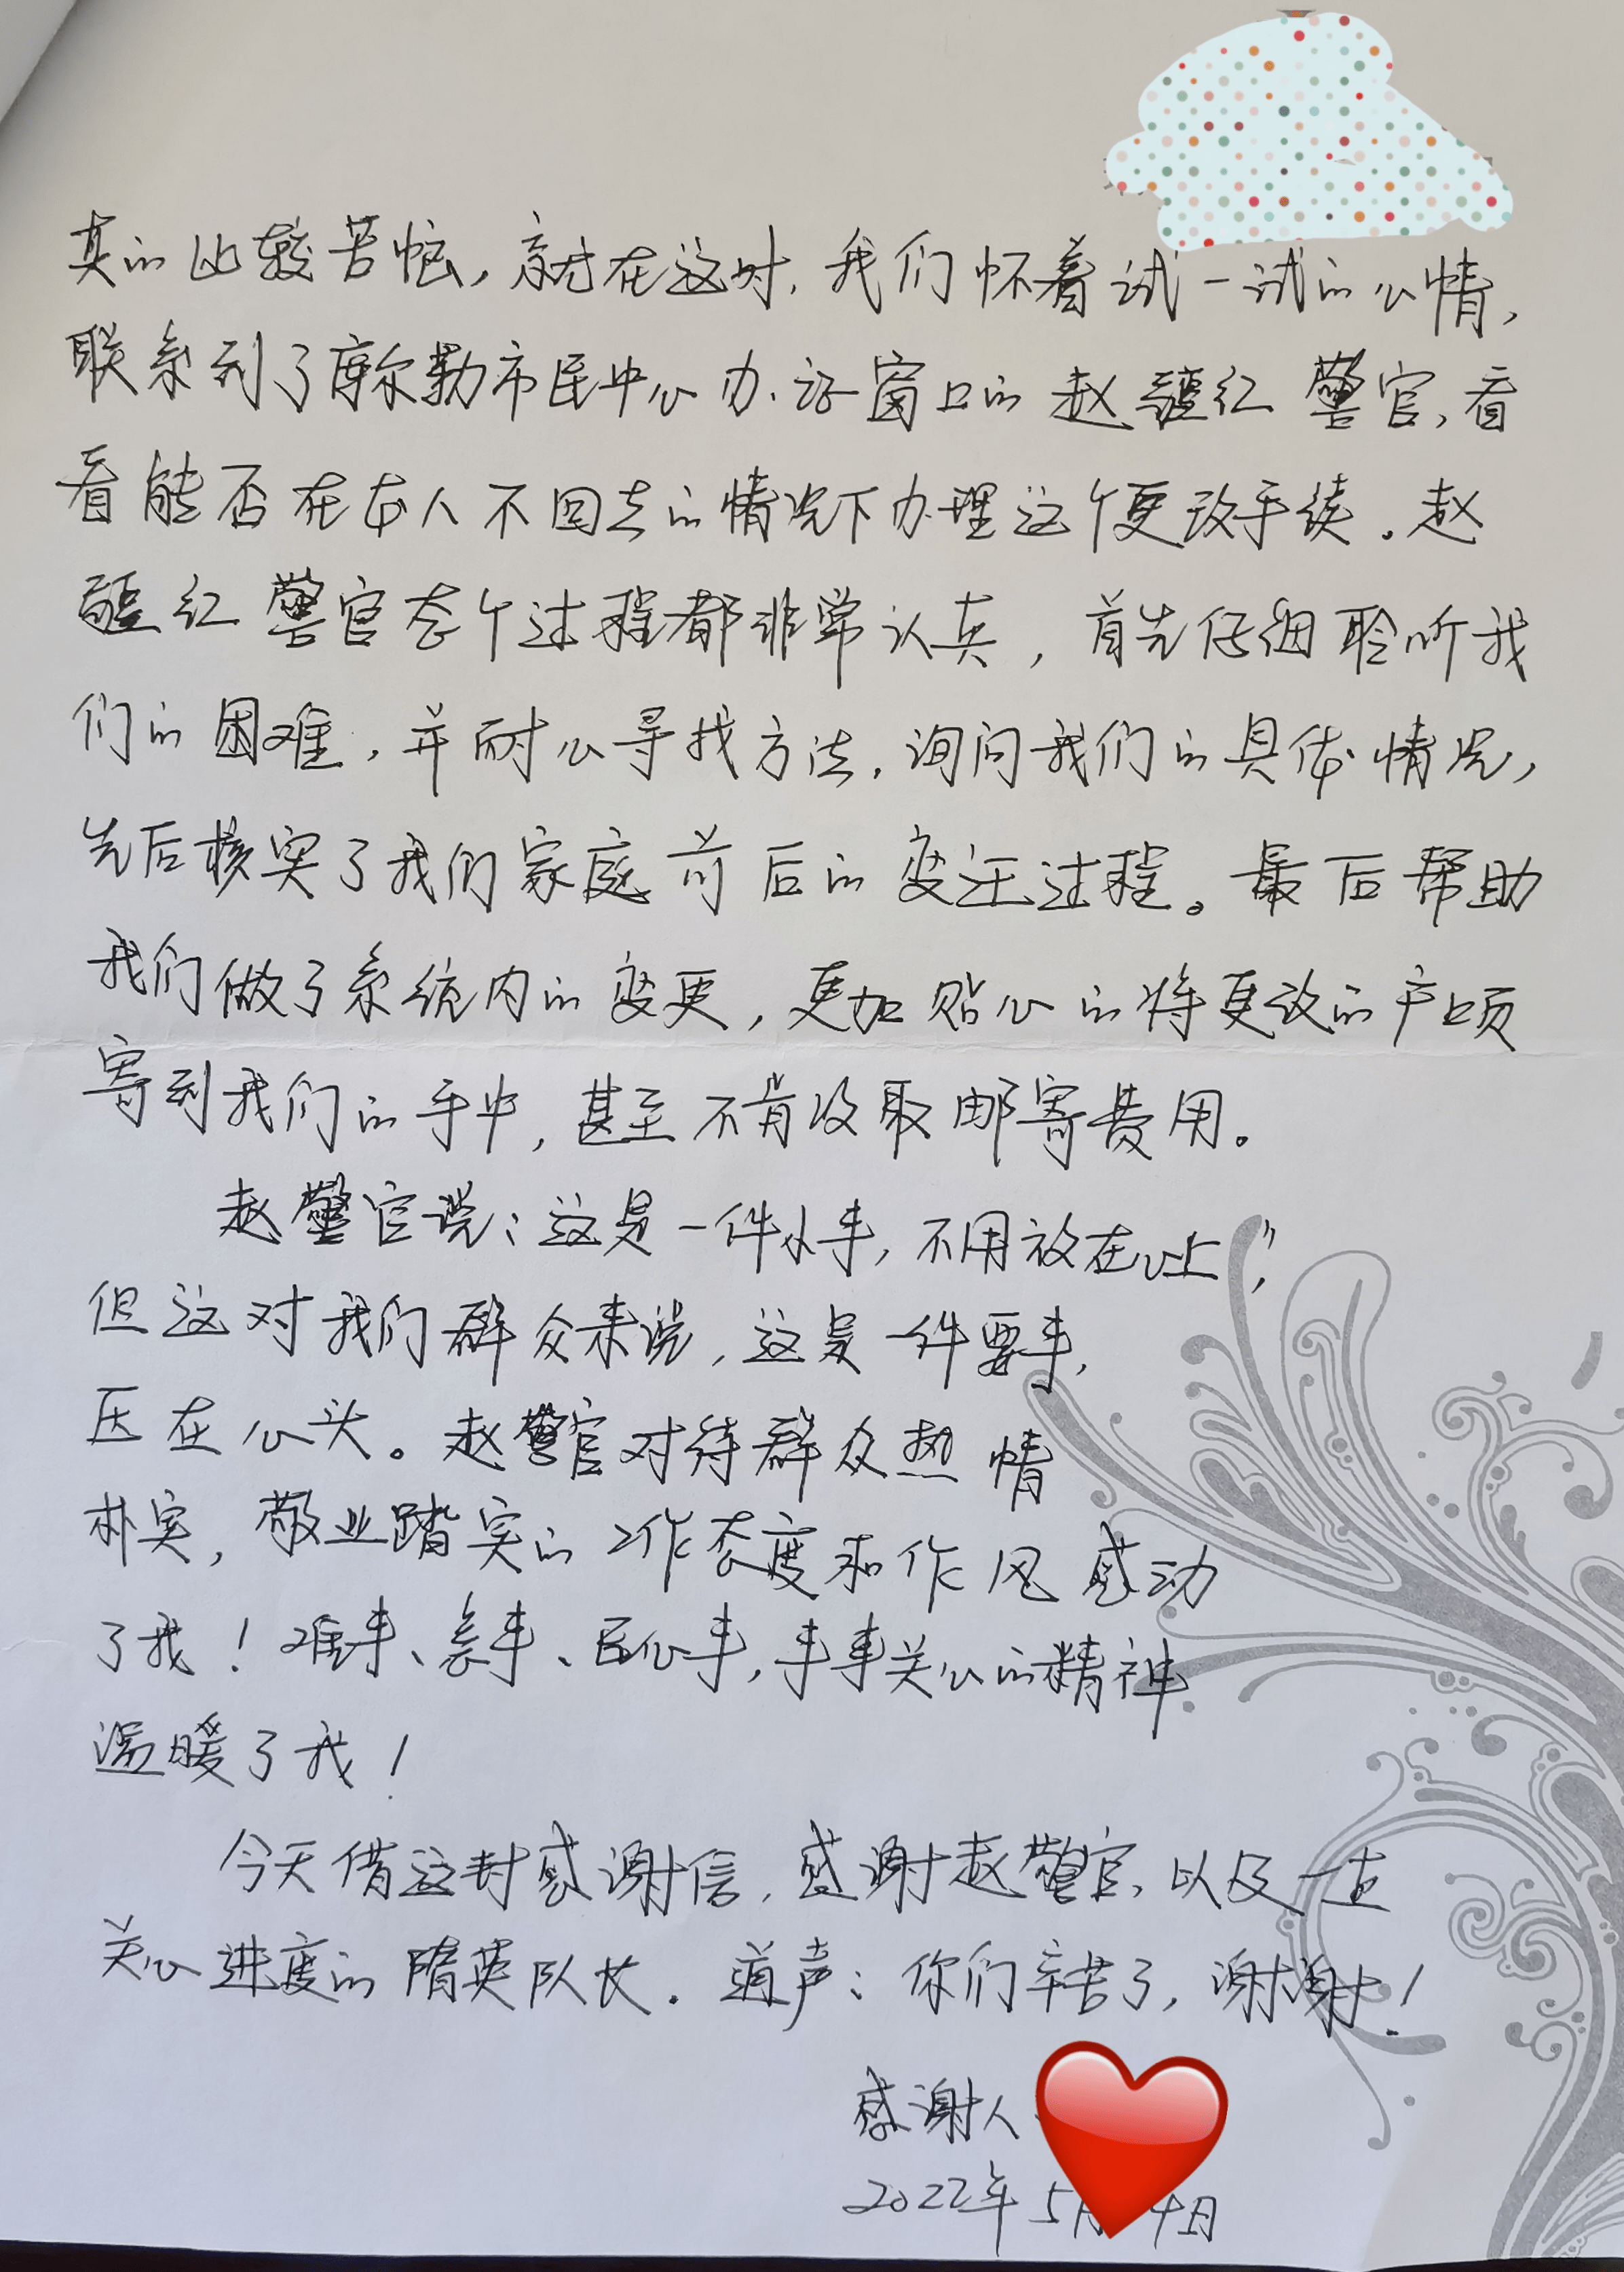 真的比较苦恼，就在这时，我们怀着试一试的心情，
联系到了库尔勒市民中心办证窗口的赵疆红警官，看
看能否在本人不回去的情况下办理这个更改手续。赵
疆红警官态个过程都非常认真，首先仔细聆听我
们的困难，并耐心寻找方法，询问我们的具体情况，
先后核实了我们家庭前后的变迁过程。最后帮助
我们做了系统内的变更，更加贴心的将更改的户页
寄到我们的手中，甚至不肯收取邮寄费用。
赵警官说：这是一件小事，不用放在心上”，
但这对我们群众来说，这是一件要事，
压在心头。赵警官对待群众热情
朴实，敬业踏实的工作态度和作风感动
了我！难事、急事、民心事，事事关心的精神
温暖了我！
今天借这封感谢信，感谢赵警官，以及一直
关心进度的隋英队长。道声：你们辛苦了，谢谢！
感谢人
2022年5月 4日